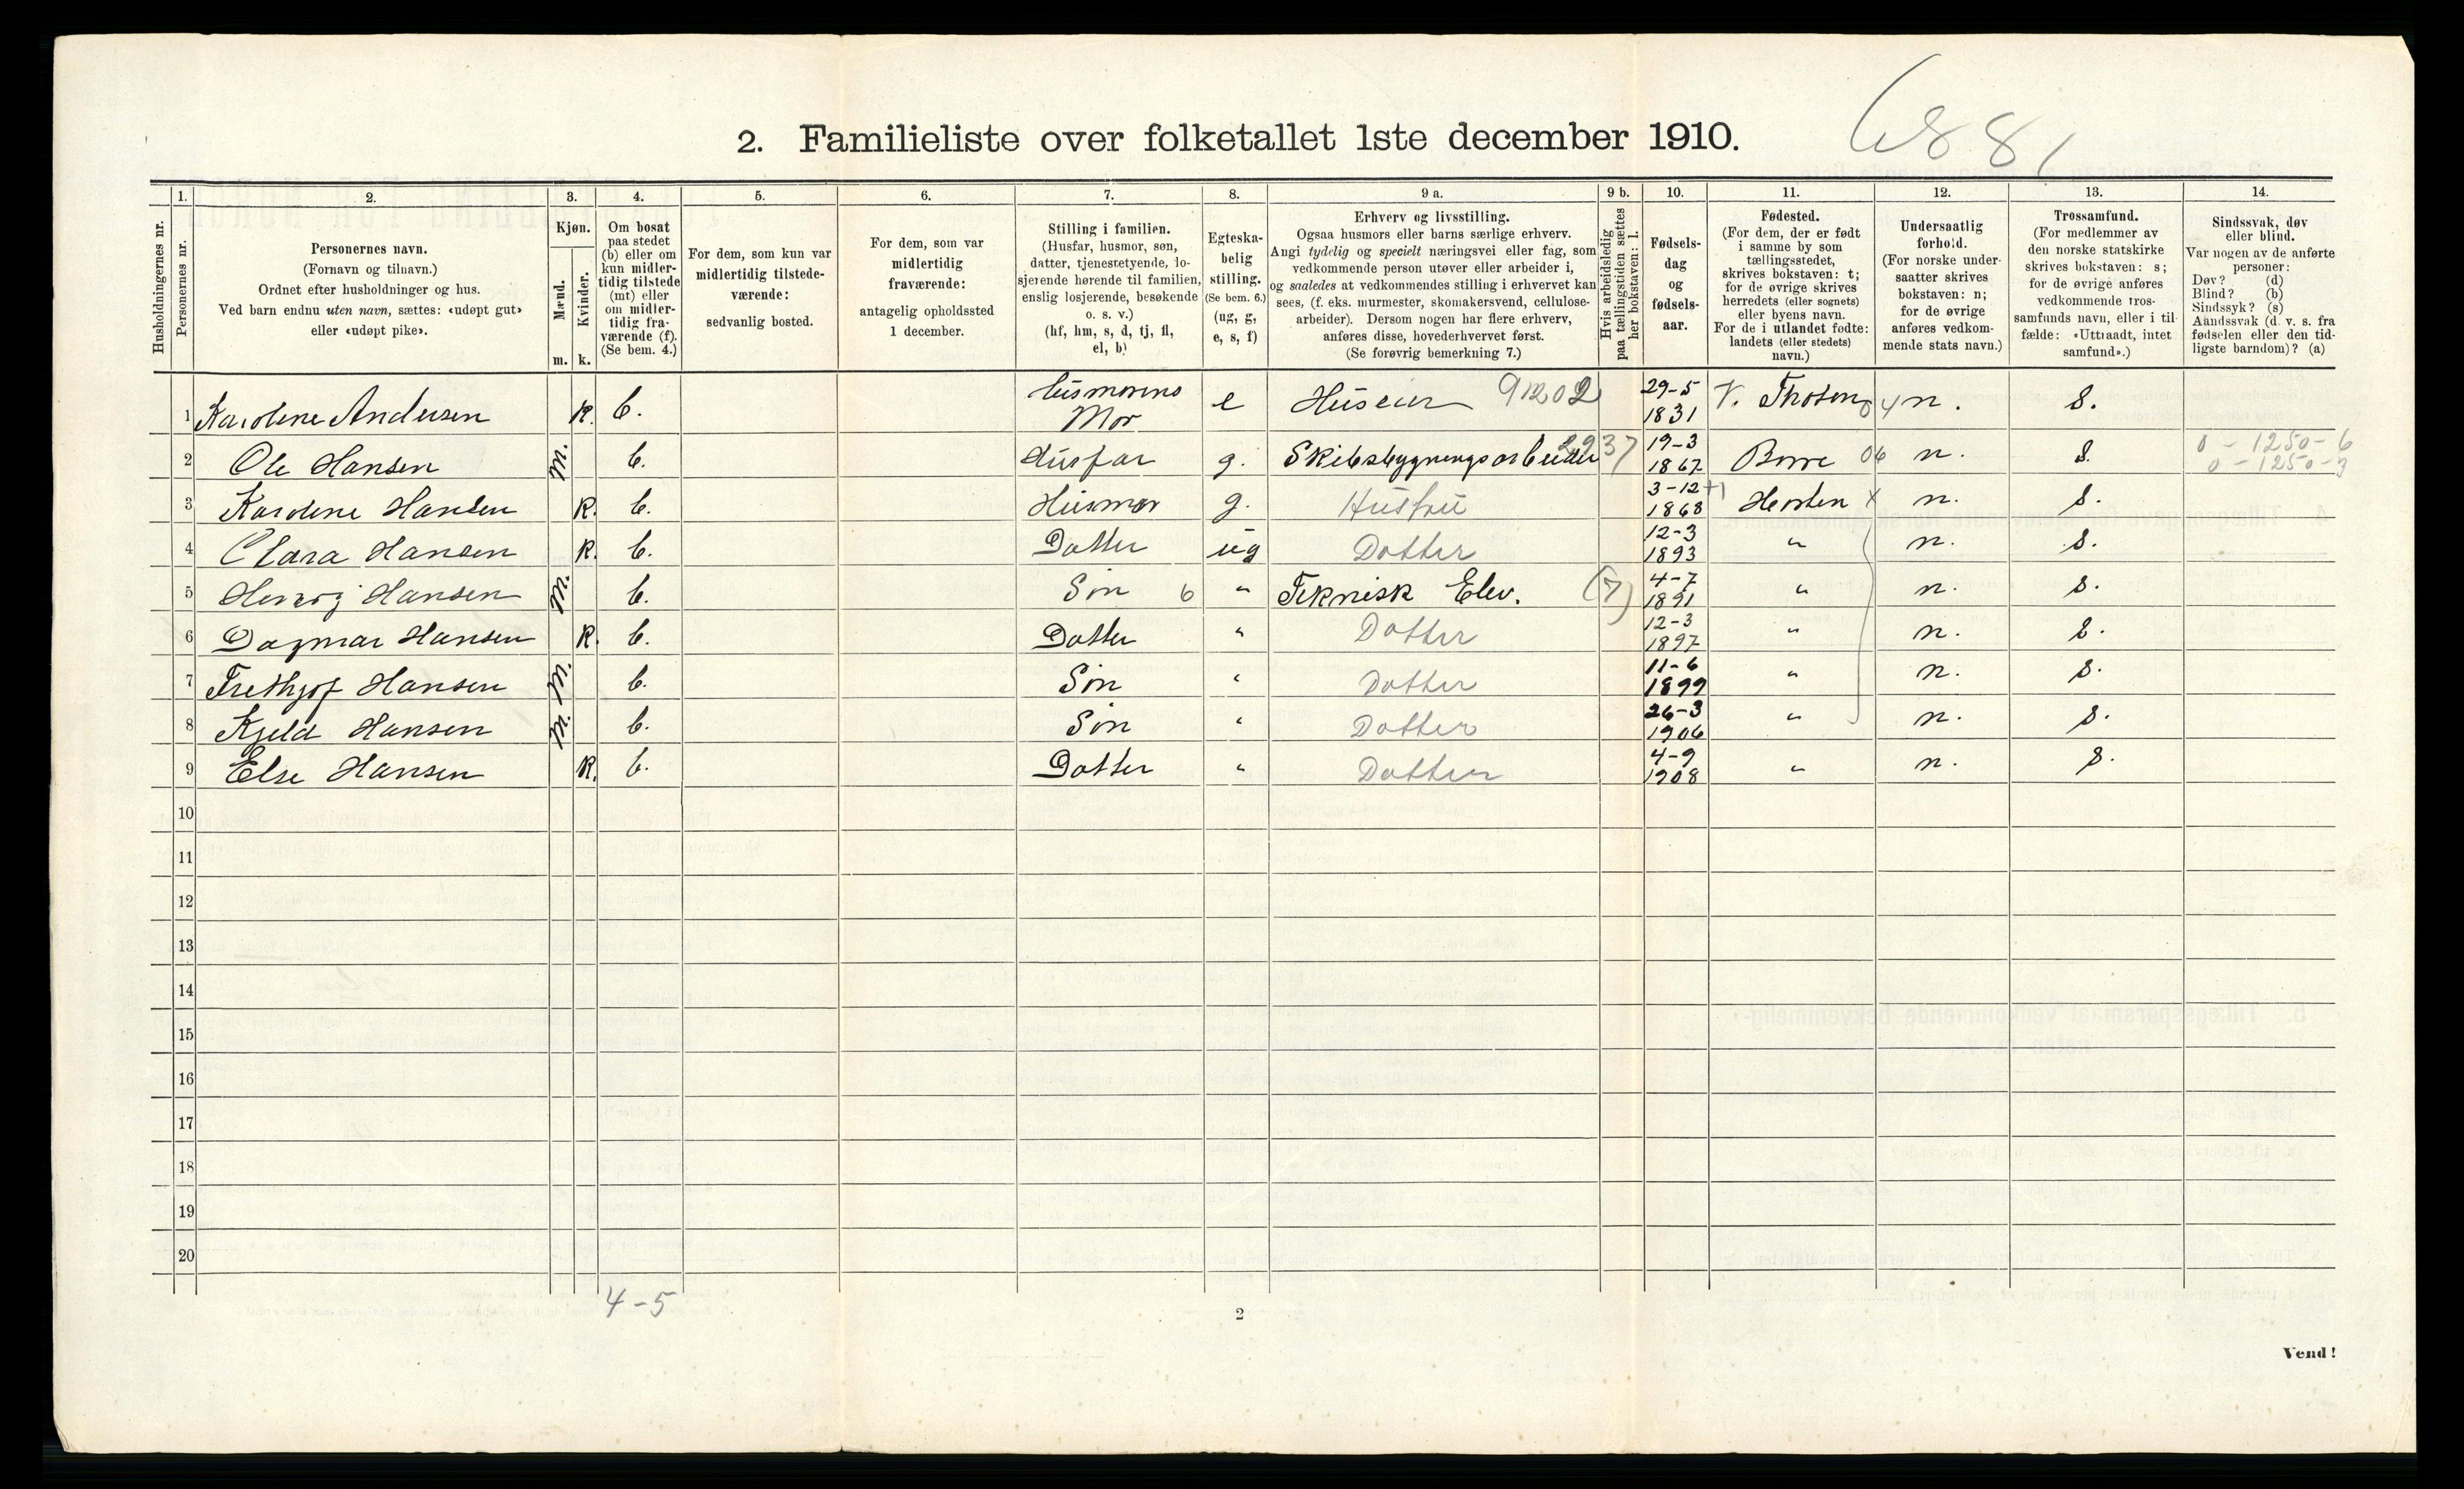 6881
2. Familieliste over folketallet 1ste december 1910.
1. 2. 3. 4. 5. 6. 7. 8. 9 a. 9 b. 10. 11. 12. 13. 14.
Husholdningernes nr.
Personernes nr.
Personernes navn.
(Fornavn og tilnavn.)
Ordnet efter husholdninger og hus.
Ved barn endnu uten navn, sættes: «udøpt gut»
eller «udøpt pike».
Kjøn.
Mænd.
Kvinder.
m. k.
Om bosat
paa stedet
(b) eller om
kun midler-
tidig tilstede
(mt) eller
om midler-
tidig fra-
værende (f).
(Se bem. 4.)
For dem, som kun var
midlertidig tilstede-
værende:
sedvanlig bosted.
For dem, som var
midlertidig
fraværende:
antagelig opholdssted
1 december.
Stilling i familien.
(Husfar, husmor, søn,
datter, tjenestetyende, lo-
sjerende hørende til familien,
enslig losjerende, besøkende
o. s. v.)
(hf, hm, s, d, tj, fl,
el, b)
Egteska-
belig
stilling.
(Se bem. 6.)
(ug, g,
e, s, f)
Erhverv og livsstilling.
Ogsaa husmors eller barns særlige erhverv.
Angi tydelig og specielt næringsvei eller fag, som
vedkommende person utøver eller arbeider i,
og saaledes at vedkommendes stilling i erhvervet kan
sees, (f. eks. murmester, skomakersvend, cellulose-
arbeider). Dersom nogen har flere erhverv,
anføres disse, hovederhvervet først.
(Se forøvrig bemerkning 7.)
Hvis arbeidsledig
paa tællingstiden sættes
her bokstaven: l.
Fødsels-
dag
og
fødsels-
aar.
Fødested.
(For dem, der er født
i samme by som
tællingsstedet,
skrives bokstaven: t;
for de øvrige skrives
herredets (eller sognets)
eller byens navn.
For de i utlandet fødte:
landets (eller stedets)
navn.)
Undersaatlig
forhold.
(For norske under-
saatter skrives
bokstaven: n;
for de øvrige
anføres vedkom-
mende stats navn.)
Trossamfund.
(For medlemmer av
den norske statskirke
skrives bokstaven: s;
for de øvrige anføres
vedkommende tros-
samfunds navn, eller i til-
fælde: «Uttraadt, intet
samfund».)
Sindssvak, døv
eller blind.
Var nogen av de anførte
personer:
Døv? (d)
Blind? (b)
Sindssyk? (s)
Aandssvak (d. v. s. fra
fødselen eller den tid-
ligste barndom)? (a)
1 Karoline Andersen K. b. Husmorens Mor e Huseier 91202 29-5 1831 V. Thoten 04 n. S.
2 Ole Hansen m. b. Husfar g. Skibsbygningsarbeider 2937 19-3 1867 Borre 06 n. S. 0 - 1250 - 6
0 - 1250 - 3
3 Karoline Hansen K. b. Husmor g. Hustru 3-12 1868 +1 Horten x n. S.
4 Clara Hansen K. b. Datter ug Datter 12-3 1893 " n. S.
5 Hervig Hansen m. b. Søn 6 " Teknisk Elev. (7) 4-7 1891 " n. S.
6 Dagmar Hansen K. b. Datter " Datter 12-3 1897 " n. S.
7 Frethjof Hansen m. b. Søn " Datter 11-6 1899 " n. S.
8 Kjeld Hansen m. b. Søn " Datter 26-3 1906 " n. S.
9 Else Hansen K. b. Datter " Datter 4-9 1908 " n. S.
10
11
12
13
14
15
16
17
18
19
20
4-5
2
Vend!